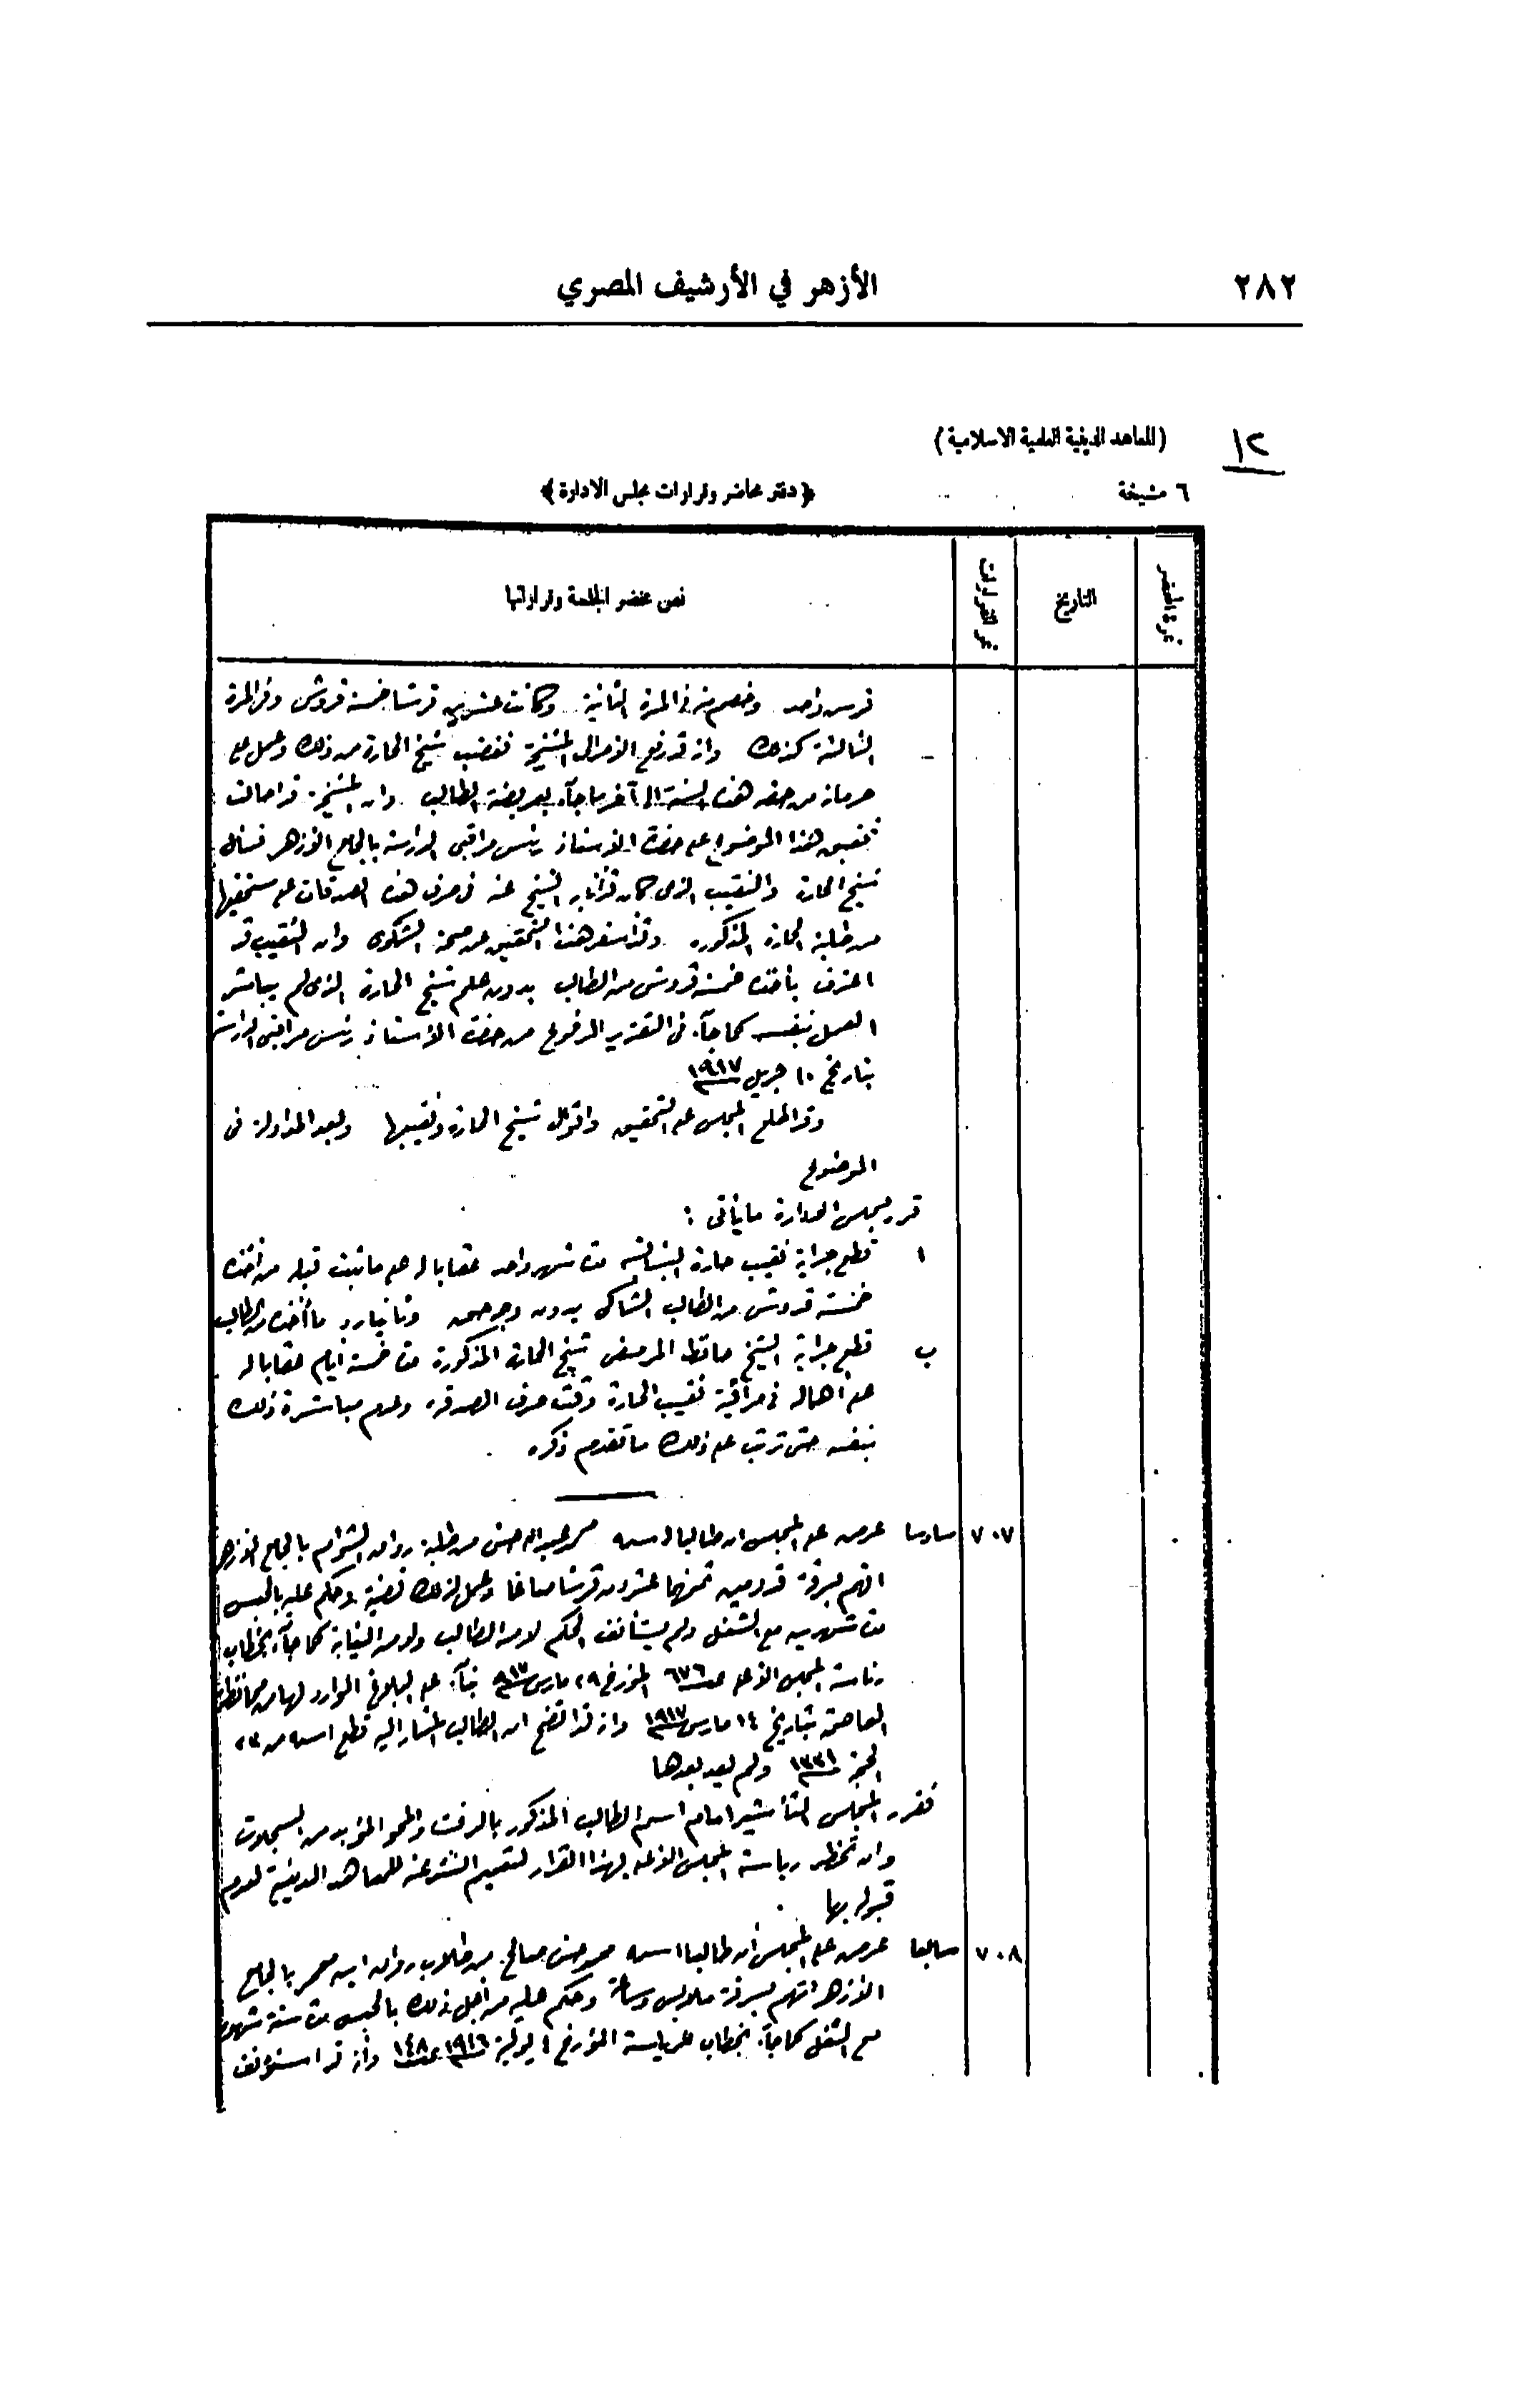 ٢٨٢
الأزهر في الأرشيف المصري
١٢
(المعاهد الدينية العلمية الاسلامية)
٦ مشيخة
﴿دفتر محاضر وقرارات مجلس الادارة﴾
نمرة المحضر
التاريخ
نمر القرارات
نص محضر الجلسة وقراراتها
قرش واحد وخصم منه في المرة الثانية وكانت عشرين قرشا خمسة قروش وفي المرة
الثالثة كذلك وانه قد رفع الأمر الى المشيخة فغضب شيخ الحارة من ذلك وعمل على
حرمانه من حقه هذه السنة الى آخر ما جآء بعريضة الطالب وان المشيخة قد احالت
تحقيق هذا الموضوع على حضرة الاستاذ رئيس مراقبى الدراسة بالجامع الأزهر فسأل
شيخ الحارة والنقيب الذى كان قد أناب الشيخ عنه فى صرف هذه الصدقات على مستحقيها
من طلبة الحارة المذكورة وقد اسفر هذا التحقيق عن صحة الشكوى وان النقيب قد
اعترف بأخذه خمسة قروش من الطالب بدون علم شيخ الحارة الذى لم يباشر
العمل بنفسه كما جآء فى التقرير المرفوع من حضرة الأستاذ رئيس مراقبى الدراسة
بتاريخ ١٠ ١٩١٧
وقد اطلع المجلس على التحقيق واقوال شيخ الحارة ونقيبها وبعد المداولة فى
الموضوع
قرر مجلس الادارة ما يأتى :
١ قطع جراية نقيب حارة مدة شهر واحد عقابا له على ما ثبت قبله من أخذه
خمسة قروش من الطالب الشاكى بدون وجه حق وثانيا رد ما أخذه من الطالب
ب قطع جراية الشيخ حافظ المرصفى شيخ الحارة المذكورة مدة خمسة أيام عقابا له
على اهماله فى مراقبة نقيب الحارة وقت صرف الصدقة وعدم مباشرة ذلك
بنفسه حتى ترتب على ذلك ما تقدم ذكره
٧٠٧ سادسا عرض على المجلس ان طالبا اسمه محمد عبد الله حسن من طلبة رواق الشوام بالجامع الأزهر
اتهم بسرقة ثمنها عشرون قرشا صاغا وعمل لذلك قضية وحكم عليه بالحبس
مدة شهرين مع الشغل ولم يستأنف الحكم لا من الطالب ولا من النيابة كما جآء بخطاب
رئاسة المجلس الأعلى نمرة ٦٧٦ المؤرخ ٢٩ مارس ٩١٧ بنآء على البلاغ الوارد لها من محافظة
العاصمة بتاريخ ١٤ مارس ١٩١٧ وانه قد اتضح ان الطالب المشار اليه قطع اسمه من ٢٣
الحجة ١٣٣١ ولم يعد بعدها
فقرر المجلس التأشير امام اسم الطالب المذكور بالرفت والمحو المؤبد من السجلات
وان تخطر رياسة المجلس الأعلى بهذا القرار لتعميم النشر عنه للمعاهد الدينية لعدم
قبوله بها
٧٠٨ سابعا عرض على المجلس أن طالبا اسمه محمود حسن صالح من طلاب رواق ابن معمر بالجامع
الأزهر اتهم بسرقة ملابس وساعة وحكم عليه من اجل ذلك بالحبس مدة ستة شهور
مع الشغل كما جآء بخطاب الرياسة المؤرخ ١ يولية ١٩١٦ نمرة ١٤٨ وأنه قد استؤنف